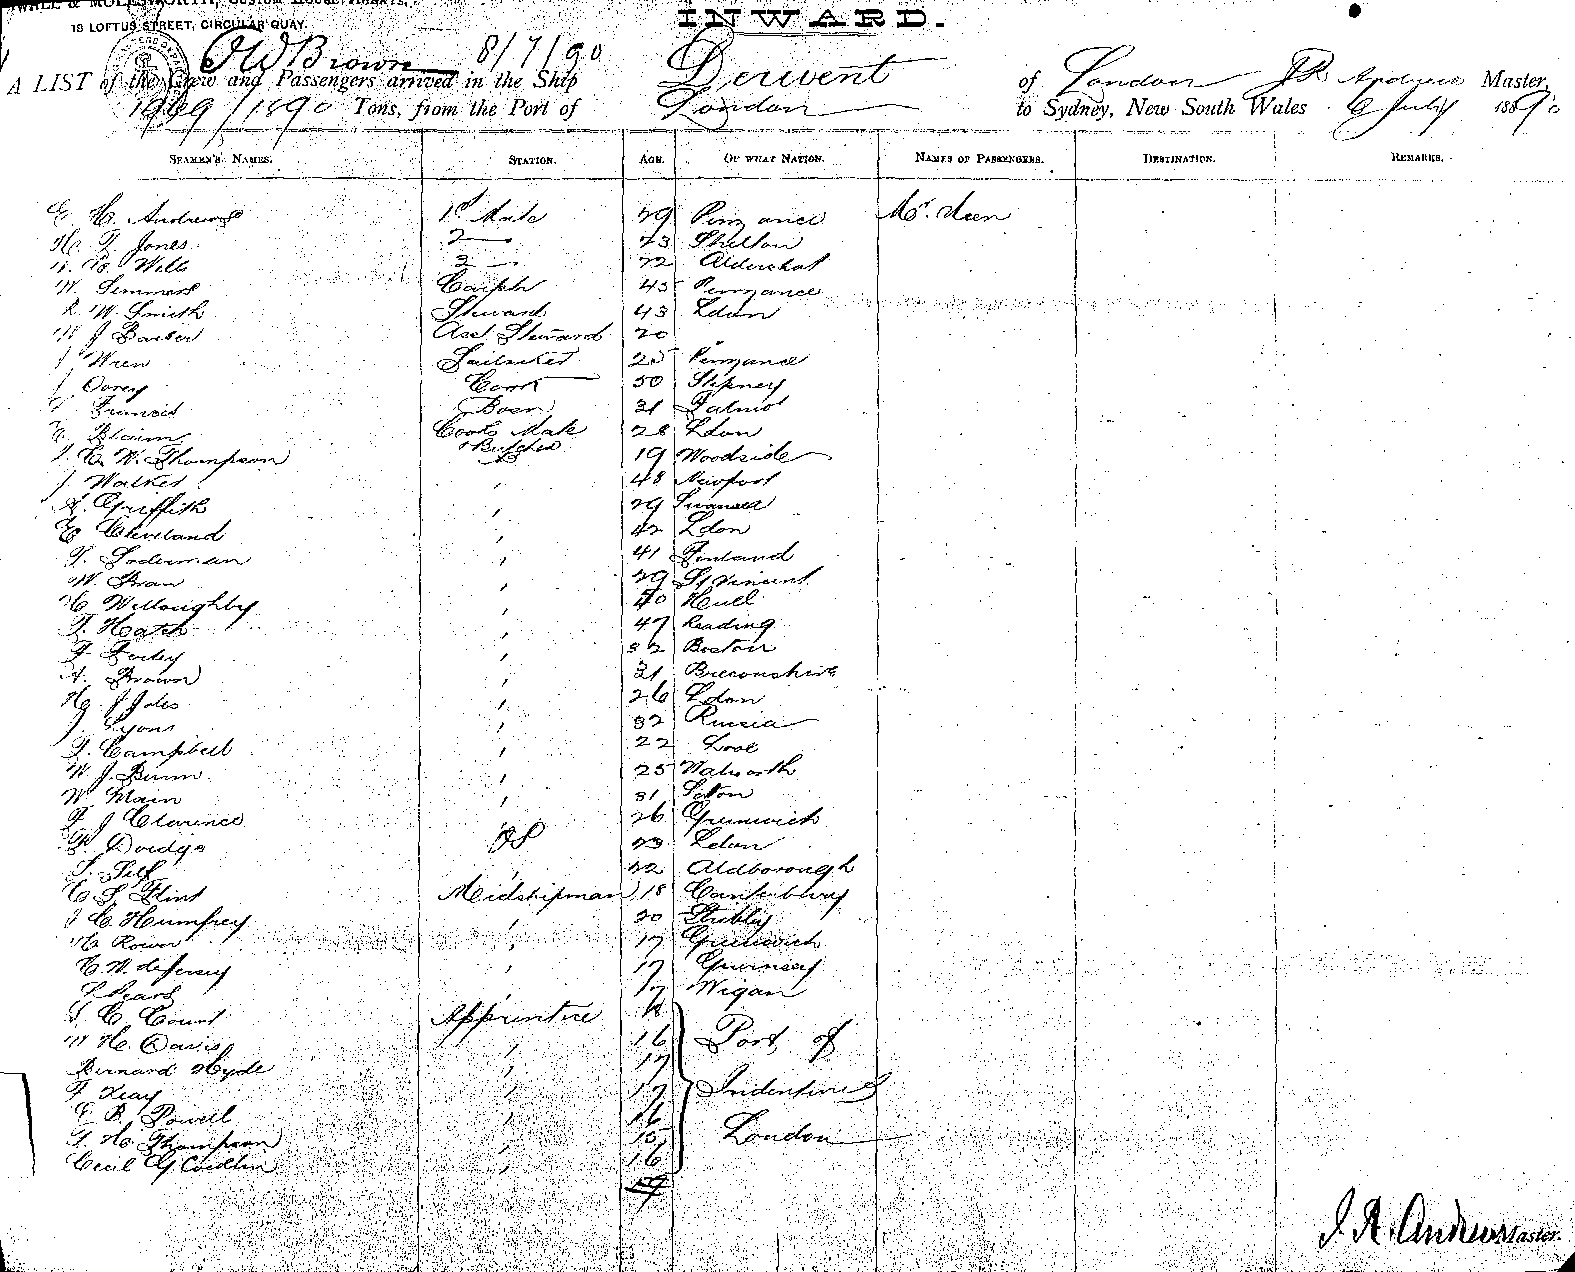 & MOLESWORTH, CUSTOM HOUSE AGENTS,
18 LOFTUS STREET, CIRCULAR QUAY.
INWARD.
Brown 8/7/90
A LIST of the Crew and Passengers arrived in the Ship Derwent of London J R Andrews Master,
1969/1890 Tons, from the Port of London to Sydney, New South Wales 6 July 1890
SEAMEN'S NAMES. STATION. AGE. OF WHAT NATION. NAMES OF PASSENGERS. DESTINATION. REMARKS.
E. H. Andrews 1st Mate 29 Penzance Mr.
H. T. Jones 2 — 23 Shelton
Wells 3 — 22 Aldershot
W. Simmons Carptr 45 Penzance
R. W. Smith Steward 43 Ldon
W J Barber Asst Steward 20
J Wren Sailmker 25 Penzance
J. Covey Cook 50 Stepney
Francis Bosn 31
Cooks Mate 28 Ldon
J. E. W. Thompson & Butcher 19 Woodside
J. Walker " 48 Newport
A. Griffith " 29 Swansea
E Cleveland " 42 Ldon
T. Soderman " 41 Finland
W. Swan " 29 St Vincent
H Willoughby " 40 Hull
T. Heath " 47 Reading
" 32 Boston
A. Brown " 31 Breconshire
" 26 Ldon
J. Lyons " 32 Russia
T. Campbell " 22 Looe
W J. Bunn " 25 Walworth
W. Main " 31
F J Clarence " 26 Greenwich
Doidge OS 23 Ldon
S. Self " 22 Aldborough
C S. Flint Midshipman 18 Canterbury
J C. Humfrey " 20
H. Rower " 17 Greenwich
C. W. deJersey " 17 Guernsey
" 17 Wigan
C. Court Apprentice
W H. Davis " 16 Port of
Bernard Hyde " 17
F Keay " 17 Indentures
E R. Powell " 16
T. H. Thompson " 15 London
Cecil " 16
J. R. Andrews Master.